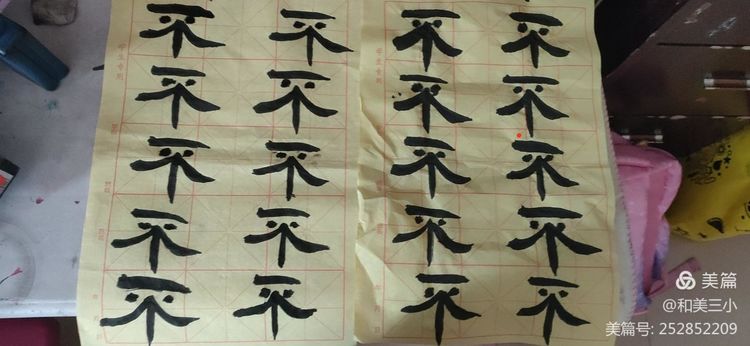 不 不 不 不
不 不 不 不
不 不 不 不
不 不 不 不
不 不 不 不
学生专用
学生专用
美篇
@和美三小
美篇号: 252852209